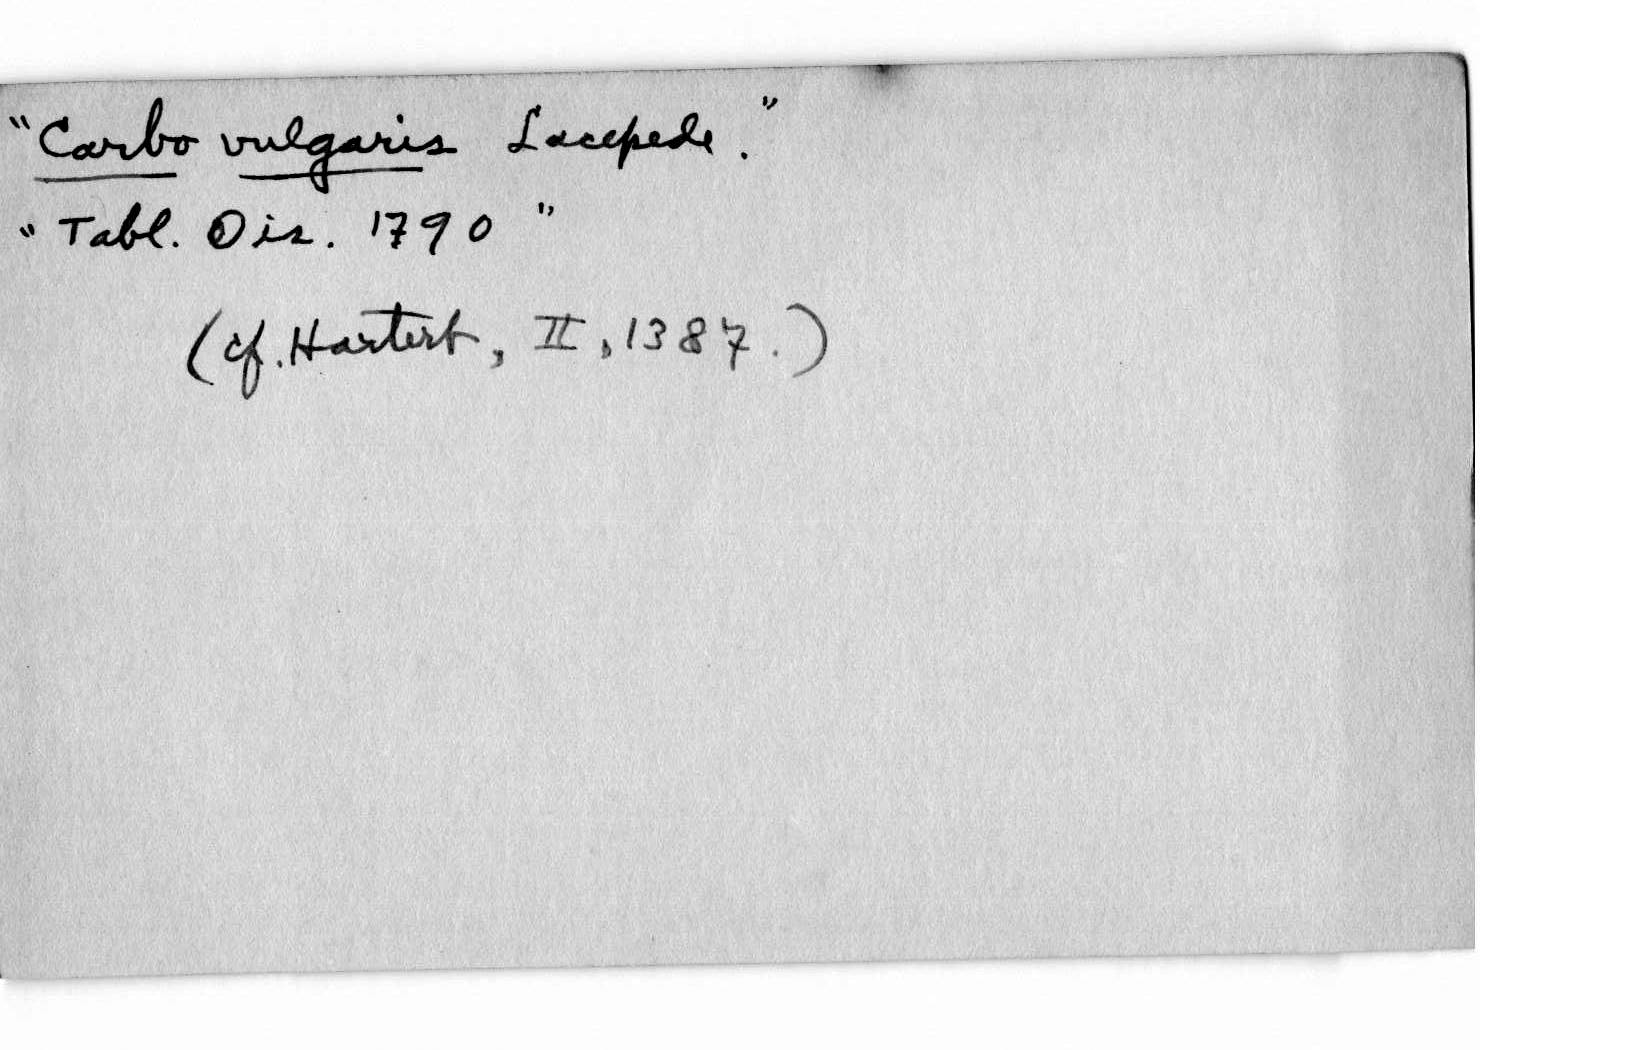 "Carbo vulgaris Lacepede."
"Tabl. Ois. 1790"
(cf. Hartert, II, 1387.)